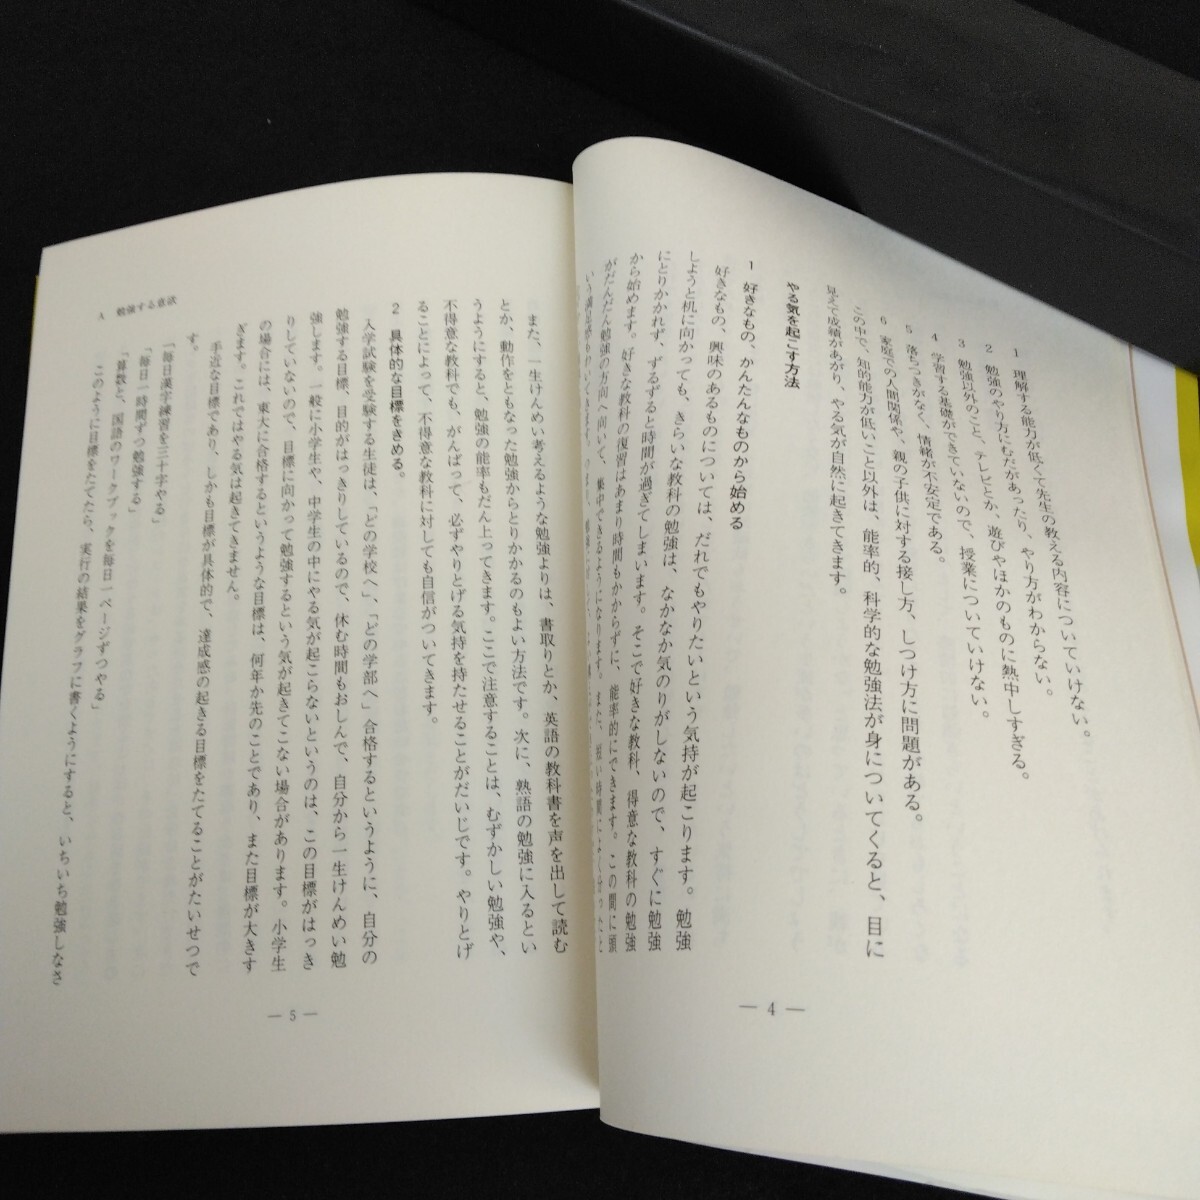 1 理解する能力が低くて先生の教える内容についていけない。
2 勉強のやり方にむだがあったり、やり方がわからない。
3 勉強以外のこと、テレビとか、遊びやほかのものに熱中しすぎる。
4 学習する基礎ができていないので、授業についていけない。
5 落ちつきがなく、情緒が不安定である。
6 家庭での人間関係や、親の子供に対する接し方、しつけ方に問題がある。
この中で、知的能力が低いこと以外は、能率的、科学的な勉強法が身についてくると、目に
見えて成績があがり、やる気が自然に起きてきます。
やる気を起こす方法
1 好きなもの、かんたんなものから始める
好きなもの、興味のあるものについては、だれでもやりたいという気持が起こります。勉強
しようと机に向かっても、きらいな教科の勉強は、なかなか気のりがしないので、すぐに勉強
にとりかかれず、ずるずると時間が過ぎてしまいます。そこで好きな教科、得意な教科の勉強
から始めます。好きな教科の復習はあまり時間もかからずに、能率的にできます。この間に頭
がだんだん勉強の方向へ向いて、集中できるようになります。また、短い時間によく分ったと
いう満足感も
— 4 —
また、一生けんめい考えるような勉強よりは、書取りとか、英語の教科書を声を出して読む
とか、動作をともなった勉強からとりかかるのもよい方法です。次に、熟語の勉強に入るとい
うようにすると、勉強の能率もだん上ってきます。ここで注意することは、むずかしい勉強や、
不得意な教科でも、がんばって、必ずやりとげる気持を持たせることがだいじです。やりとげ
ることによって、不得意な教科に対しても自信がついてきます。
2 具体的な目標をきめる。
入学試験を受験する生徒は、「どの学校へ」、「どの学部へ」合格するというように、自分の
勉強する目標、目的がはっきりしているので、休む時間もおしんで、自分から一生けんめい勉
強します。一般に小学生や、中学生の中にやる気が起こらないというのは、この目標がはっき
りしていないので、目標に向かって勉強するという気が起きてこない場合があります。小学生
の場合には、東大に合格するというような目標は、何年か先のことであり、また目標が大きす
ぎます。これではやる気は起きてきません。
手近な目標であり、しかも目標が具体的で、達成感の起きる目標をたてることがたいせつで
す。
「毎日漢字練習を三十字やる」
「毎日一時間ずつ勉強する」
「算数と、国語のワークブックを毎日一ページずつやる」
このように目標をたてたら、実行の結果をグラフに書くようにすると、いちいち勉強しなさ
A 勉強する意欲
— 5 —